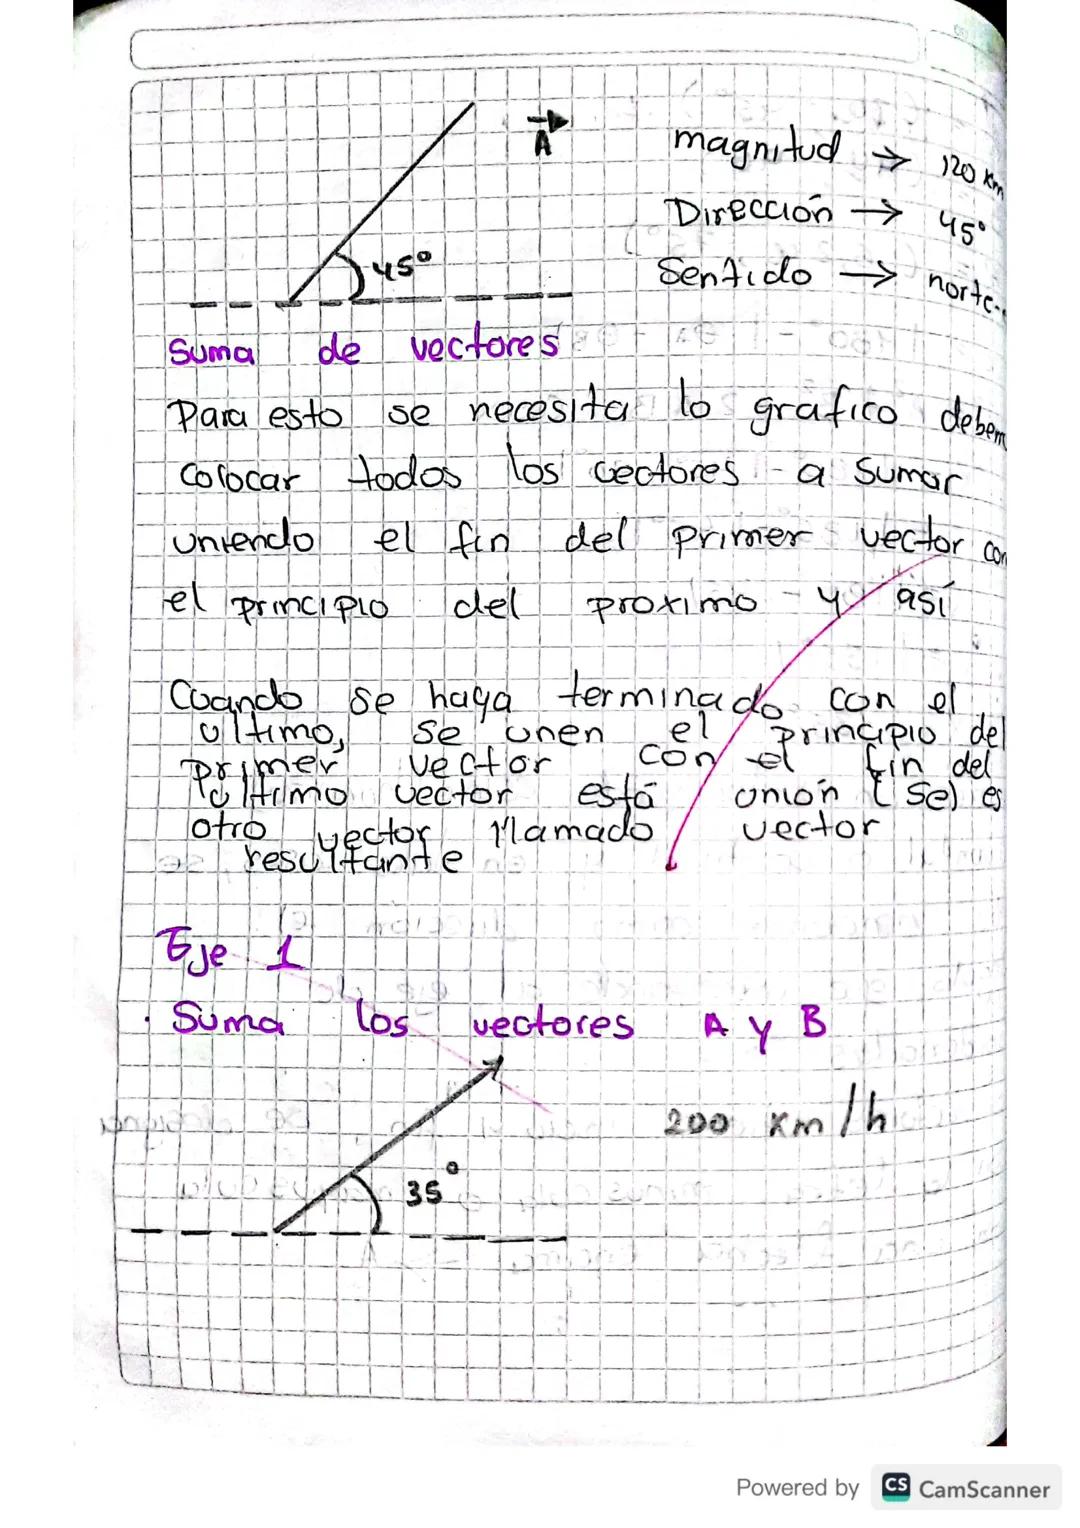 A
magnitud → 120 km
Dirección → 45°
Sentido → norte..
45°
Suma de vectores
Para esto se necesita lo grafico debem
colocar todos los vectores a sumar
uniendo el fin del primer vector con
el principio del proximo y así
Cuando se haya terminado con el
ultimo, se unen el principio del
primer vector con el fin del
ultimo vector está unión (se) es
otro vector llamado vector
resultante
Eje 1
. Suma los vectores A y B
200 km/h
35°
Powered by CS CamScanner